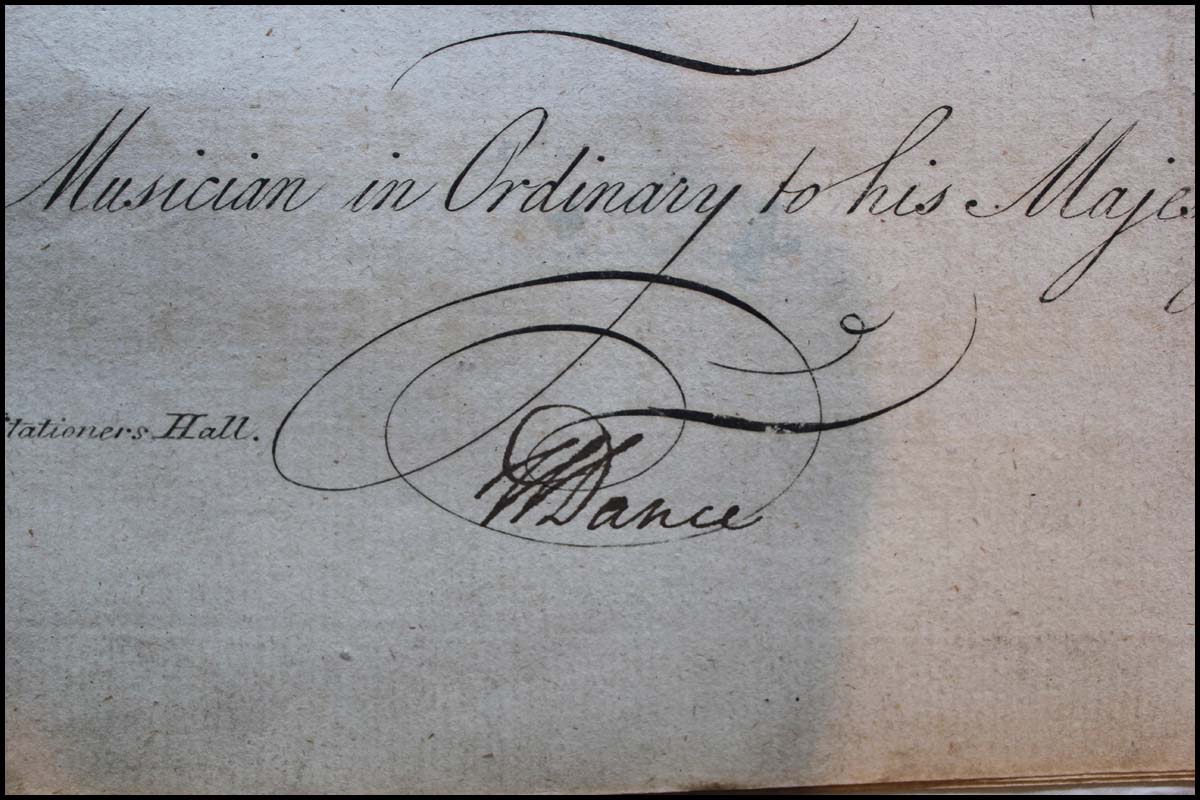 Musician in Ordinary to his Majes
Stationers Hall.
WDance